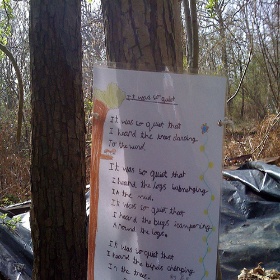 It was so quiet
It was so quiet that
I heard the trees dancing
In the wind.
It was so quiet that
I heard the logs submerging
In the mud.
It was so quiet that
I heard the bugs scampering
Around the logs.
It was so quiet that
I heard the birds chirping
In the trees.